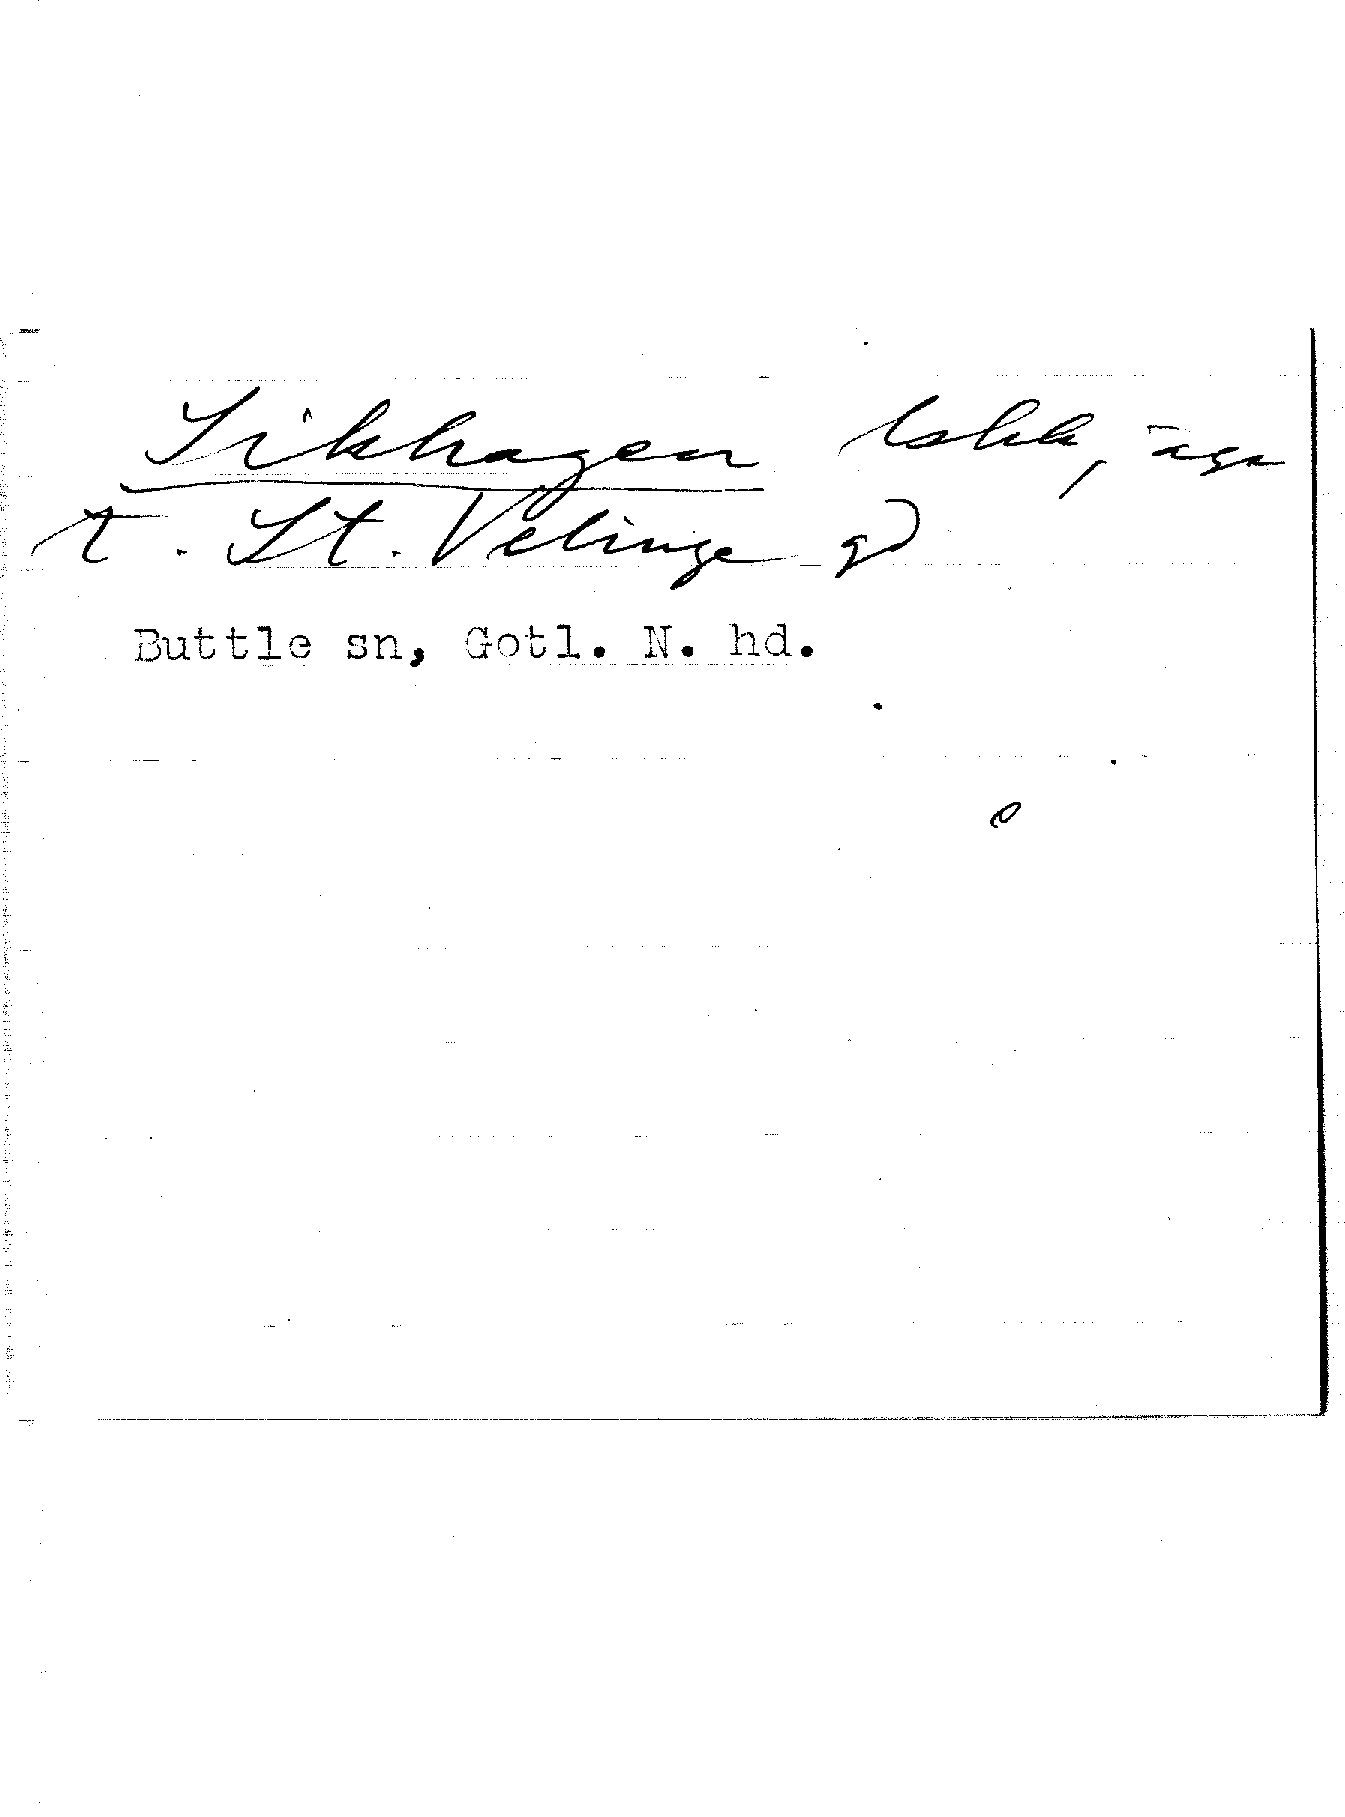 Sikhagen lokk, äga
t. St. Velinge gd
Buttle sn, Gotl. N. hd.